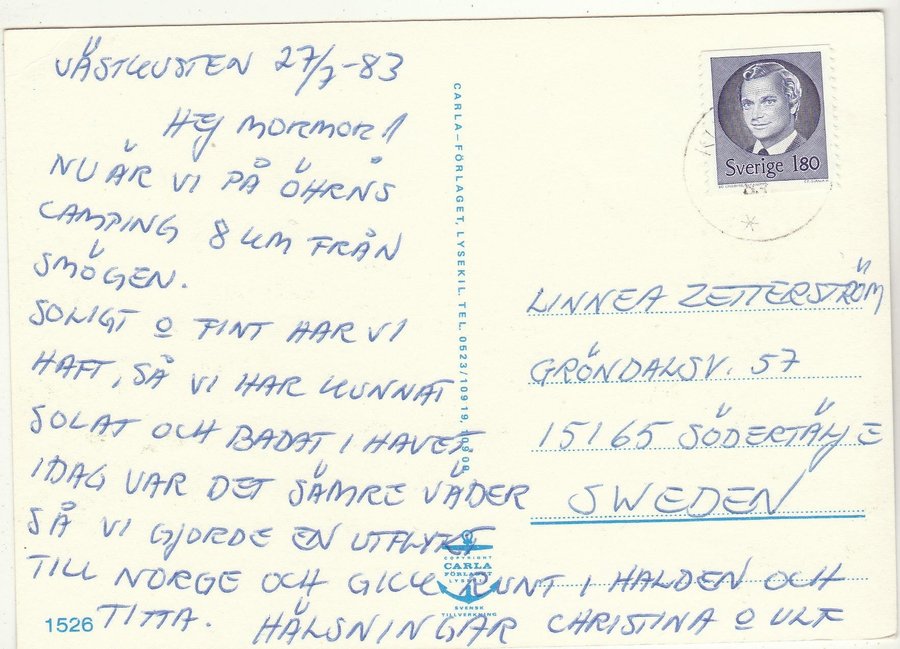 VÄSTKUSTEN 27/7-83
HEJ MORMOR!
NU ÄR VI PÅ ÖHRNS
CAMPING 8 KM FRÅN
SMÖGEN.
SOLIGT O FINT HAR VI
HAFT, SÅ VI HAR KUNNAT
SOLAT OCH BADAT I HAVET.
IDAG VAR DET SÄMRE VÄDER
SÅ VI GJORDE EN UTFLYKT
TILL NORGE OCH GICK RUNT I HALDEN OCH
TITTA.
HÄLSNINGAR CHRISTINA O ULF
1526
CARLA-FÖRLAGET, LYSEKIL. TEL. 0523/109 19, 109 08
COPYRIGHT
CARLA
FÖRLAGET
LYSEKIL
SVENSK
TILLVERKNING
Sverige 180
83
LINNEA ZETTERSTRÖM
GRÖNDALSV. 57
15165 SÖDERTÄLJE
SWEDEN